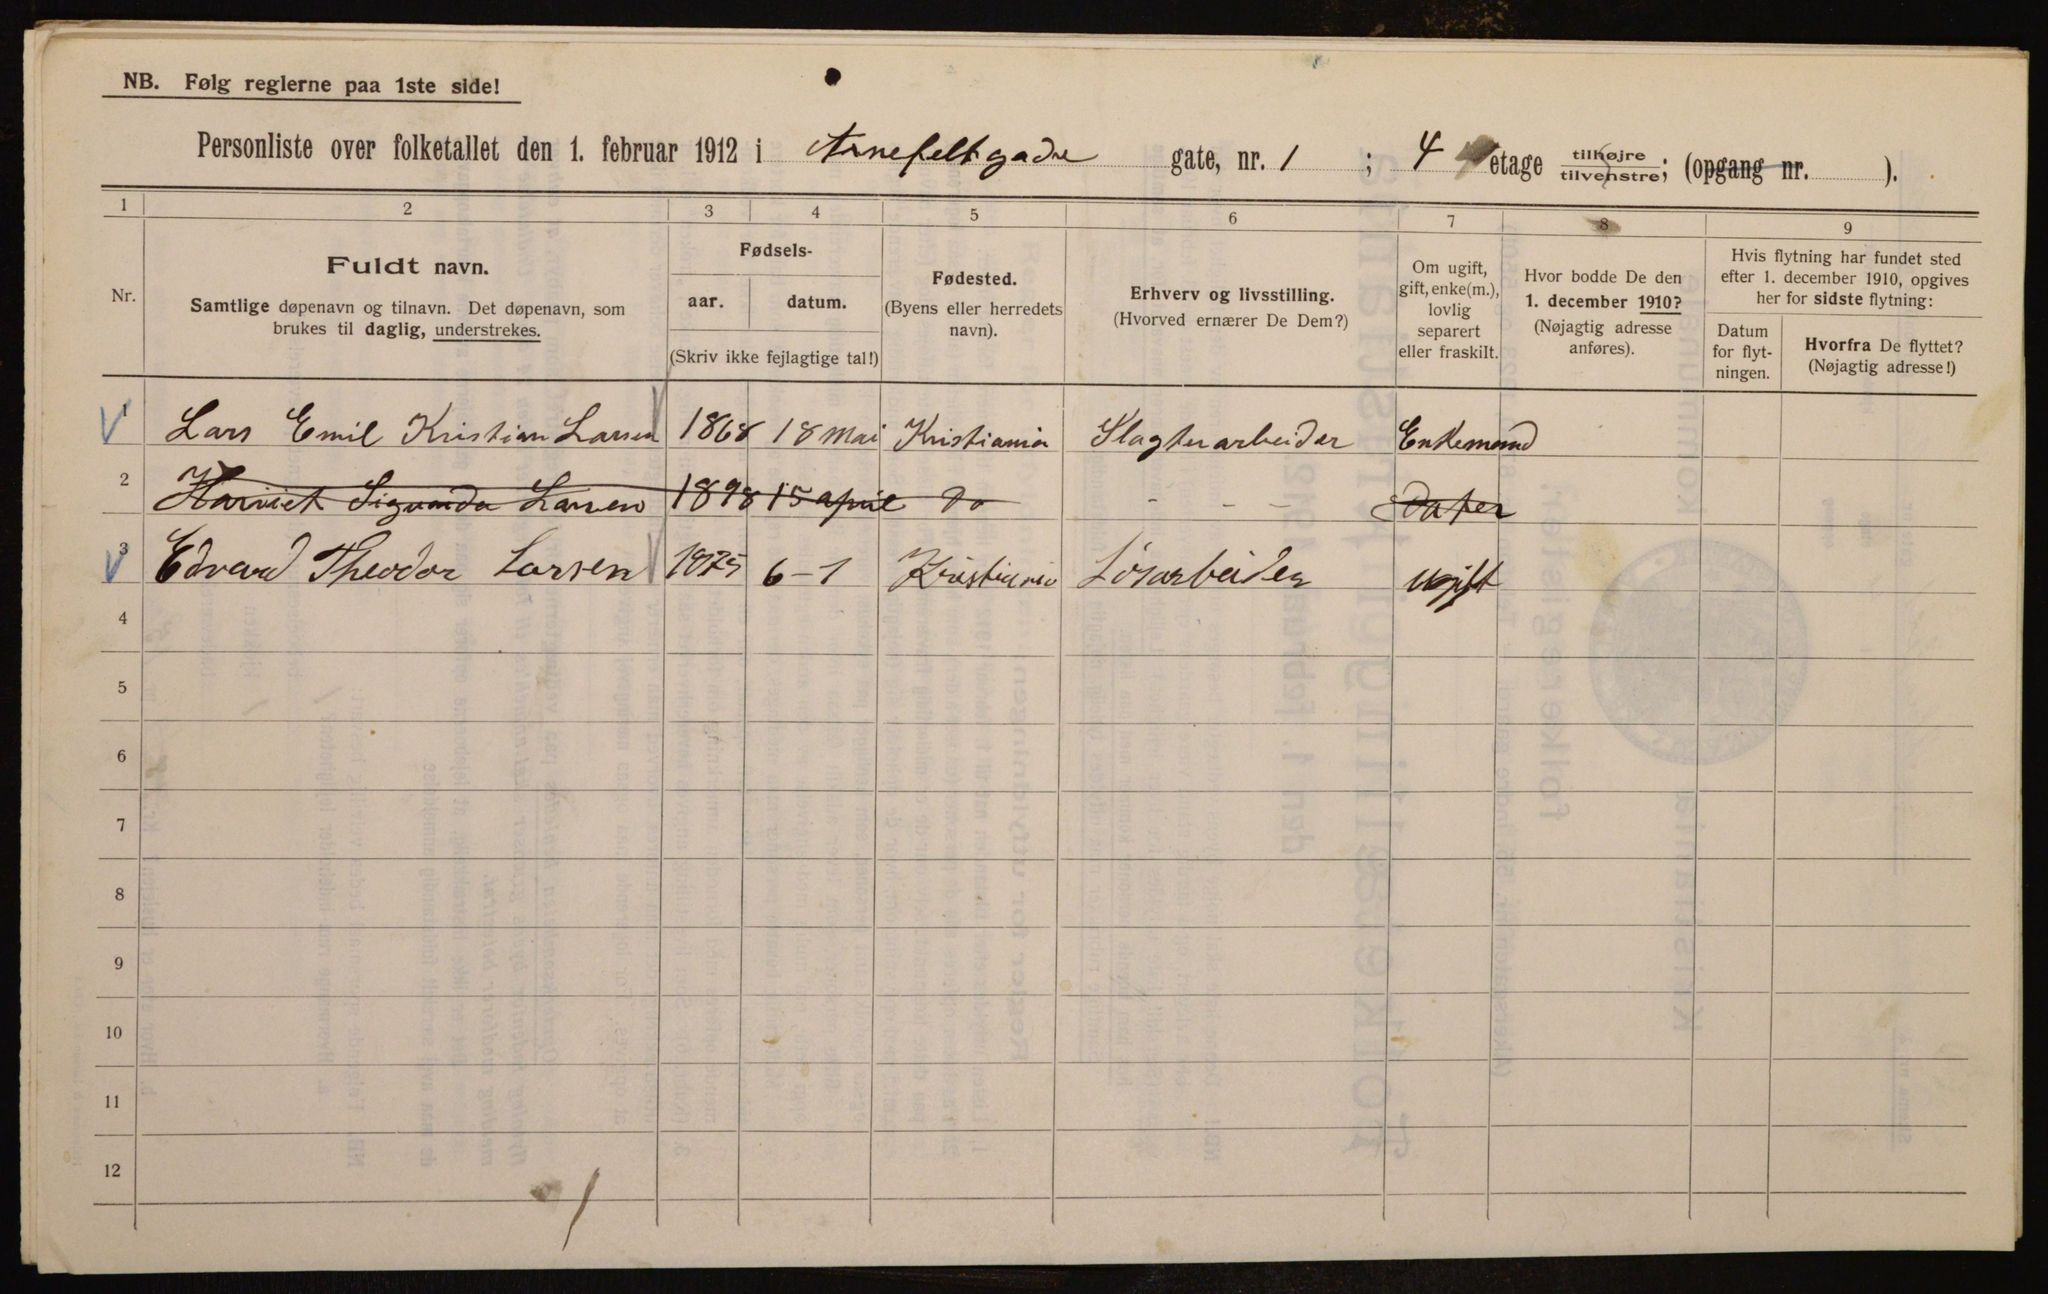 NB. Følg reglerne paa 1ste side!
Personliste over folketallet den 1. februar 1912 i Arnefeltgade gate, nr. 1 ; 4 etage tilhøjre tilvenstre; (opgang nr. ).
1 2 3 4 5 6 7 8 9
Nr.
Fuldt navn.
Samtlige døpenavn og tilnavn. Det døpenavn, som
brukes til daglig, understrekes.
Fødsels-
aar. datum.
(Skriv ikke fejlagtige tal!)
Fødested.
(Byens eller herredets
navn).
Erhverv og livsstilling.
(Hvorved ernærer De Dem?)
Om ugift,
gift, enke(m.),
lovlig
separert
eller fraskilt.
Hvor bodde De den
1. december 1910?
(Nøjagtig adresse
anføres).
Hvis flytning har fundet sted
efter 1. december 1910, opgives
her for sidste flytning:
Datum
for flyt-
ningen.
Hvorfra De flyttet?
(Nøjagtig adresse!)
1 Lars Emil Kristian Larsen 1868 18 Mai Kristiania Slagterarbeider Enkemand
2 Harriet Larsen 1898 15 april Do - - Dater
3 Edvard Theodor Larsen 1875 6-1 Kristiania Løsarbeider ugift
4
5
6
7
8
9
10
11
12